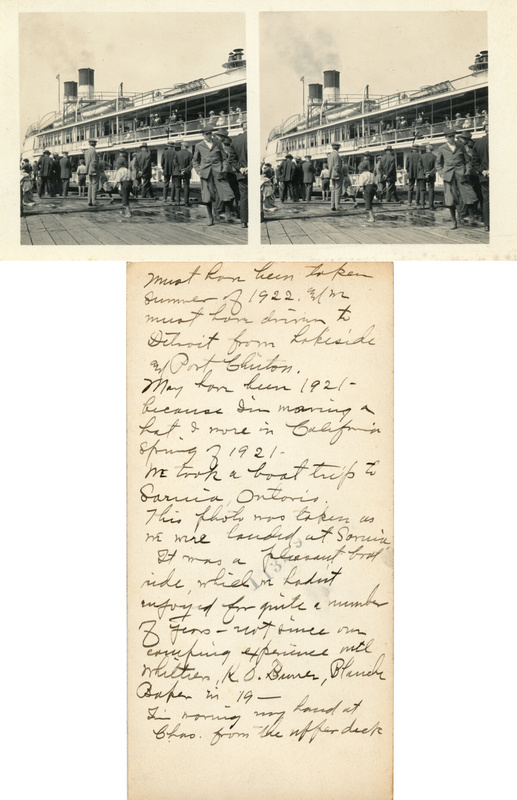 Must have been taken
summer of 1922. We
must have driven to
Detroit from Lakeside
Port Clinton.
May have been 1921-
because I'm wearing a
hat I wore in California
Spring of 1921-
We took a boat trip to
Sarnia, Ontario.
This photo was taken as
we were landed at Sarnia
It was a pleasant boat
ride, which we hadn't
enjoyed for quite a number
of years - not since our
camping experience with
Whittiers, K. D. Blanche
Baker in 19—
I'm waving my hand at
Chas. from the upper deck